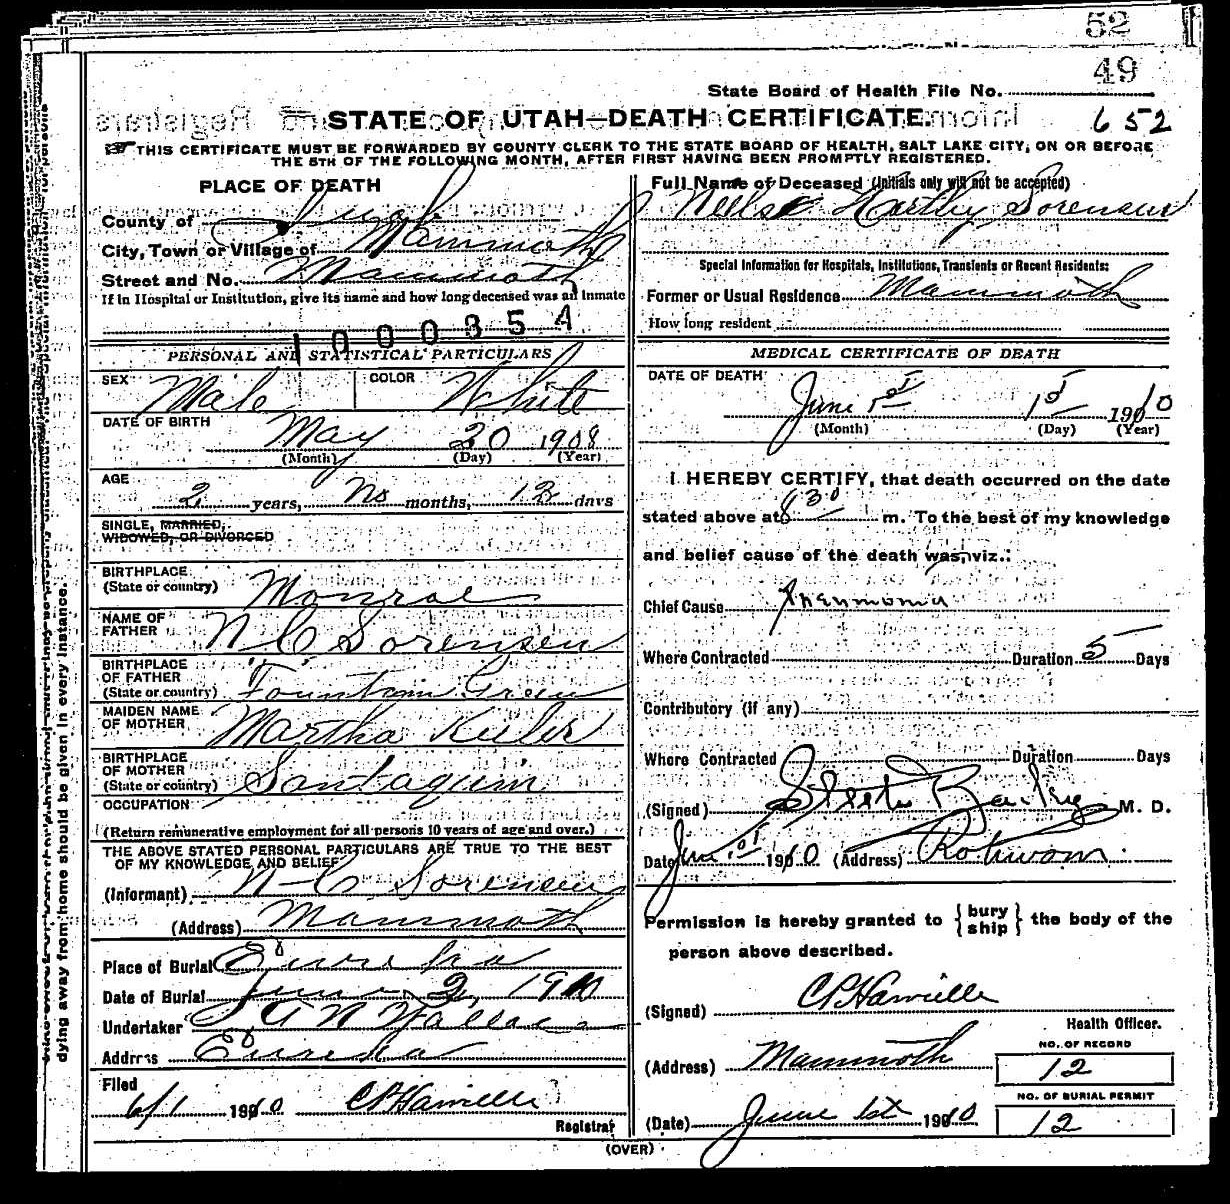 52
49
State Board of Health File No.
STATE OF UTAH—DEATH CERTIFICATE.
652
THIS CERTIFICATE MUST BE FORWARDED BY COUNTY CLERK TO THE STATE BOARD OF HEALTH, SALT LAKE CITY, ON OR BEFORE
THE 5TH OF THE FOLLOWING MONTH, AFTER FIRST HAVING BEEN PROMPTLY REGISTERED.
PLACE OF DEATH
County of Juab
City, Town or Village of Mammoth
Street and No. Mammoth
If in Hospital or Institution, give its name and how long deceased was an inmate
1000354
PERSONAL AND STATISTICAL PARTICULARS
SEX Male COLOR White
DATE OF BIRTH May 20 1908
(Month) (Day) (Year)
AGE
2 years, No months, 12 days
SINGLE, MARRIED,
WIDOWED, OR DIVORCED
BIRTHPLACE
(State or country) Monroe
NAME OF
FATHER N C Sorensen
BIRTHPLACE
OF FATHER
(State or country) Fountain Green
MAIDEN NAME
OF MOTHER Martha Keeler
BIRTHPLACE
OF MOTHER
(State or country) Santaquin
OCCUPATION
(Return remunerative employment for all persons 10 years of age and over.)
THE ABOVE STATED PERSONAL PARTICULARS ARE TRUE TO THE BEST
OF MY KNOWLEDGE AND BELIEF
(Informant) N C Sorensen
(Address) Mammoth
Place of Burial Eureka
Date of Burial June 2, 1910
Undertaker Wallace
Address Eureka
Filed
6/1 1910 CP Hamille
Registrar
Full Name of Deceased (Initials only will not be accepted)
Neels Hartley Sorensen
Special Information for Hospitals, Institutions, Transients or Recent Residents:
Former or Usual Residence Mammoth
How long resident
MEDICAL CERTIFICATE OF DEATH
DATE OF DEATH
June 1st 1st 1910
(Month) (Day) (Year)
I HEREBY CERTIFY, that death occurred on the date
stated above at 830 m. To the best of my knowledge
and belief cause of the death was, viz.:
Chief Cause Pneumonia
Where Contracted Duration 5 Days
Contributory (if any)
Where Contracted Duration Days
(Signed) Steele Bailey M. D.
Date June 1st 1910 (Address)
Permission is hereby granted to { bury ship } the body of the
person above described.
(Signed) CP Hamille
Health Officer.
(Address) Mammoth
NO. OF RECORD
12
NO. OF BURIAL PERMIT
(Date) June 1st 1910
12
(OVER)
dying away from home should be given in every instance.